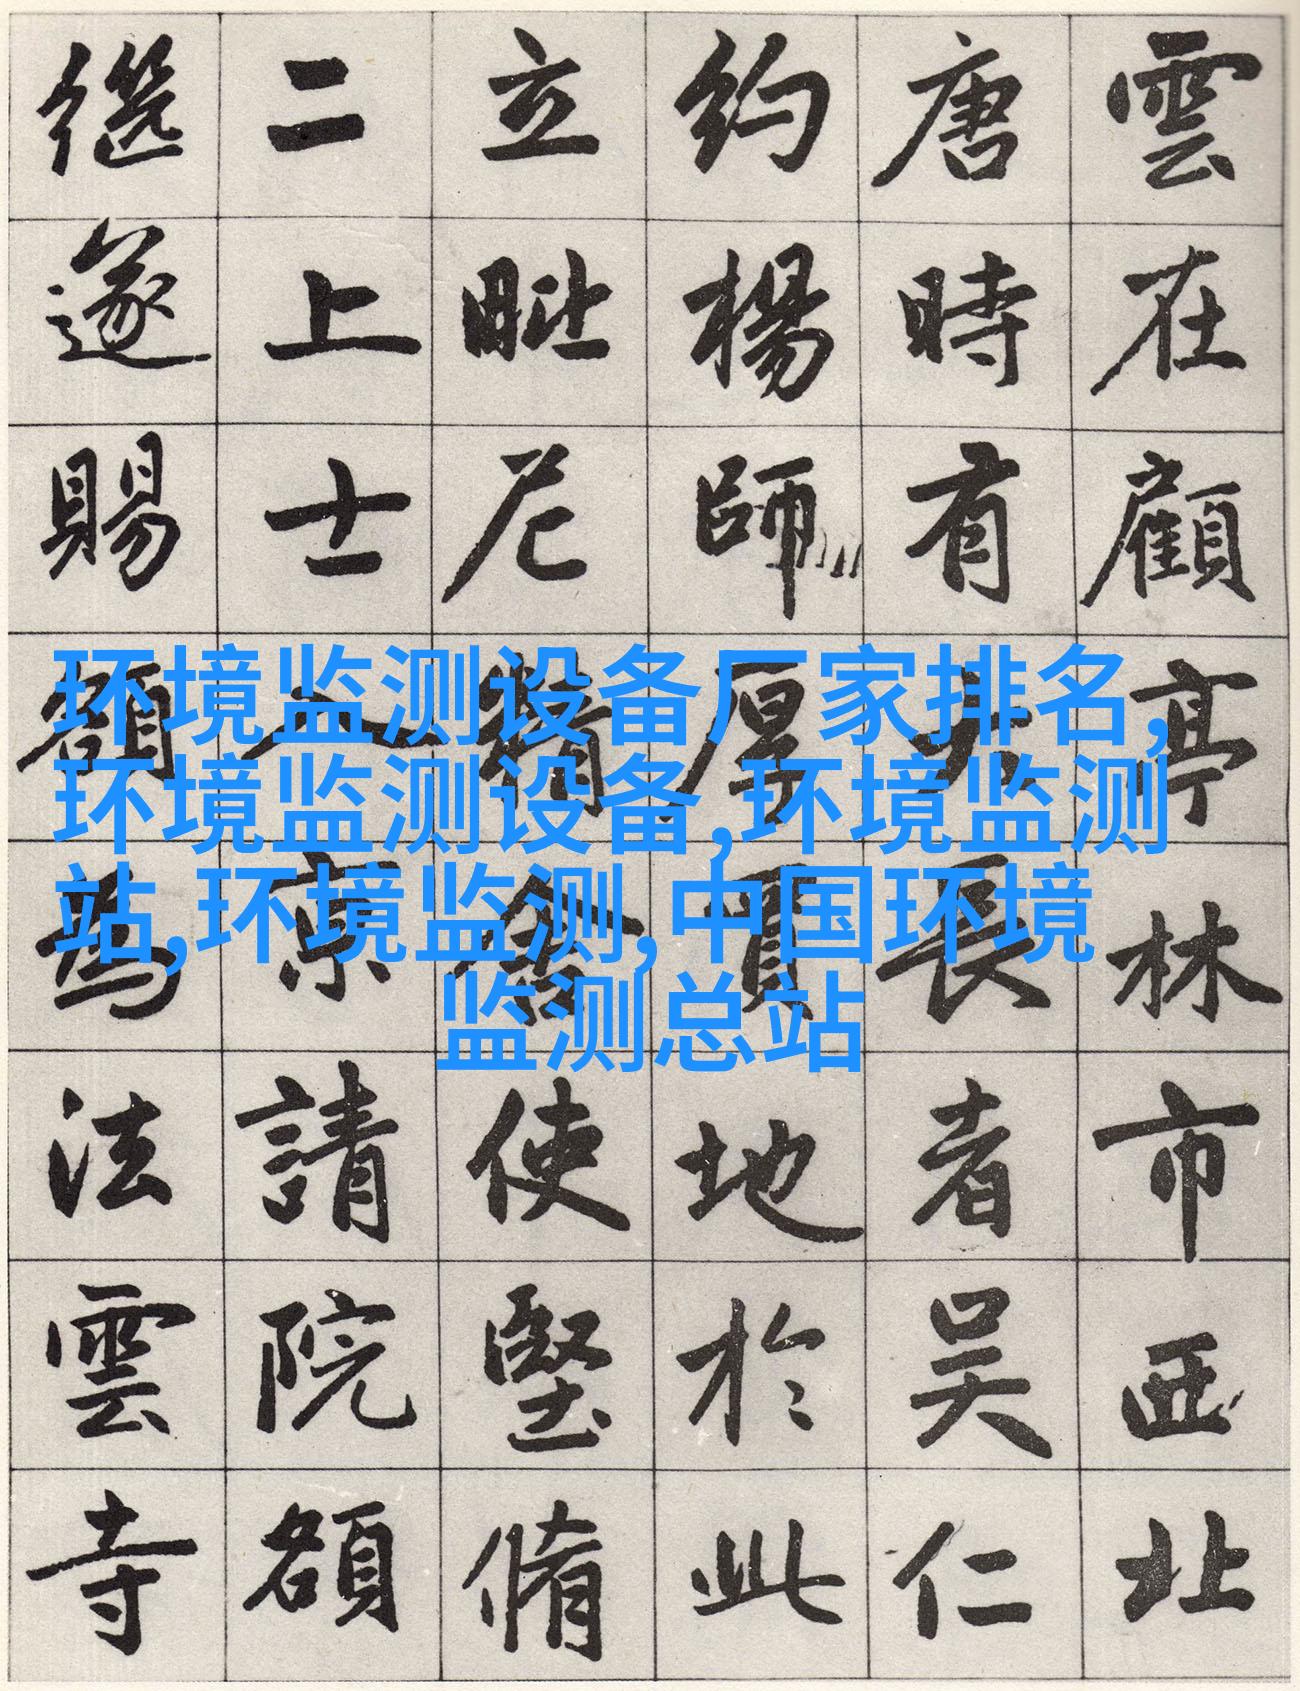 雲在顧亭林市西北
唐時有大長者吴仁
約楊師厚買地於此
立毗尼精舍使堅脩
二上士入京請院額
繼遂賜額為法雲寺
环境监测设备厂家排名,
环境监测设备,环境监测
站,环境监测,中国环境
监测总站